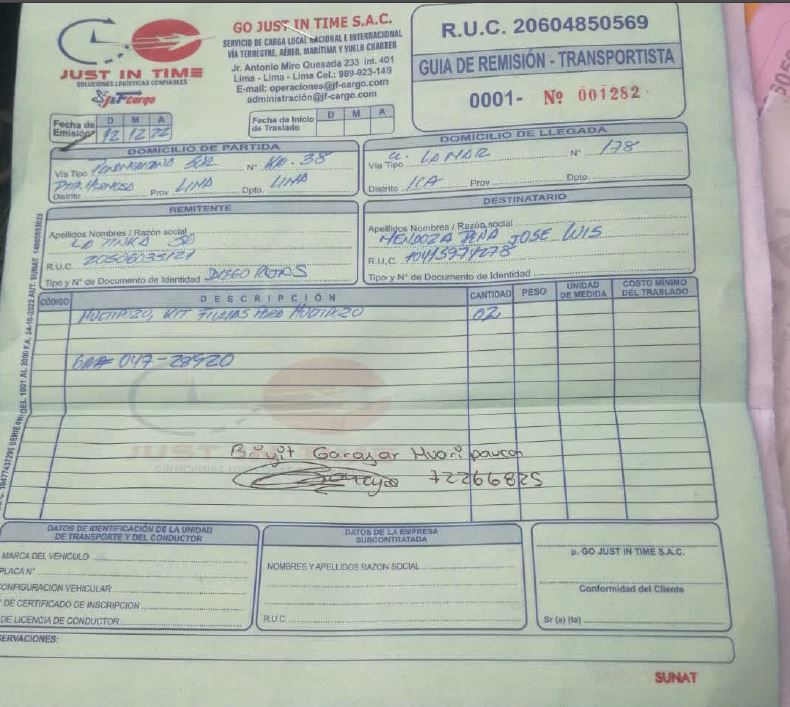 JUST IN TIME
SOLUCIONES LOGÍSTICAS CONFIABLES
J&F Cargo
GO JUST IN TIME S.A.C.
SERVICIO DE CARGA LOCAL NACIONAL E INTERNACIONAL
VÍA TERRESTRE, AÉREO, MARÍTIMA Y VUELO CHARTER
Jr. Antonio Miro Quesada 233 Int. 401
Lima - Lima - Lima Cel.: 989-923-149
E-mail: operaciones@jf-cargo.com
administración@jf-cargo.com
R.U.C. 20604850569
GUIA DE REMISIÓN - TRANSPORTISTA
0001- Nº 001282
Fecha de Emisión D M A
12 12 22
Fecha de Inicio de Traslado D M A
DOMICILIO DE PARTIDA
Vía Tipo Panamericana Sur Nº KD. 38
Distrito Pta. Hermosa Prov LIMA Dpto. LIMA
DOMICILIO DE LLEGADA
Vía Tipo LA MAR Nº 178
Distrito ICA Prov Dpto.
REMITENTE
Apellidos Nombres / Razón social
LA TINKA
R.U.C. 20506035121
Tipo y Nº de Documento de Identidad DIEGO ROJAS
DESTINATARIO
Apellidos Nombres / Razón social
MENDOZA PEÑA JOSE LUIS
R.U.C. 10415974278
Tipo y Nº de Documento de Identidad
CÓDIGO DESCRIPCIÓN CANTIDAD PESO UNIDAD DE MEDIDA COSTO MINIMO DEL TRASLADO
MULTIPOZO, KIT MULTIPOZO 02
047-28920
JUST IN TIME
Bryit Garayar Huaripaucar
Garayar 72266825
DATOS DE IDENTIFICACIÓN DE LA UNIDAD DE TRANSPORTE Y DEL CONDUCTOR
MARCA DEL VEHICULO
PLACA Nº
CONFIGURACION VEHICULAR
DE CERTIFICADO DE INSCRIPCION
DE LICENCIA DE CONDUCTOR
DATOS DE LA EMPRESA SUBCONTRATADA
NOMBRES Y APELLIDOS RAZON SOCIAL
R.U.C.
p. GO JUST IN TIME S.A.C.
Conformidad del Cliente
Sr (a) (ta)
SERVACIONES:
SUNAT